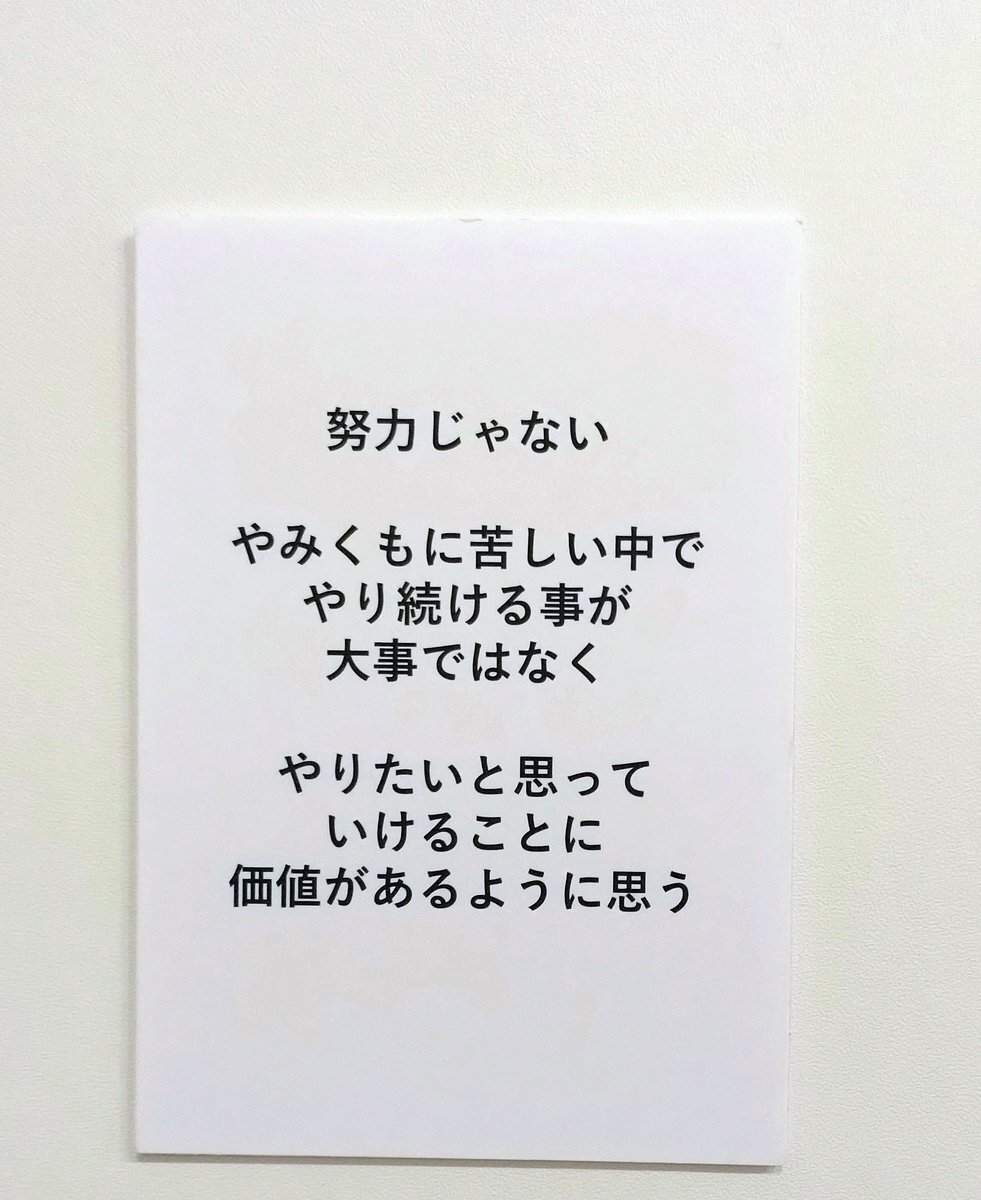 努力じゃない
やみくもに苦しい中で
やり続ける事が
大事ではなく
やりたいと思って
いけることに
価値があるように思う